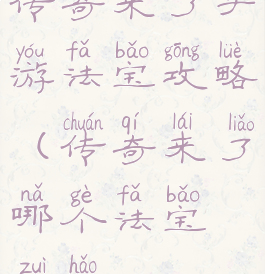 传奇来了手
yóu fǎ bǎo gōng lüè
游法宝攻略
chuán qí lái liǎo
（传奇来了
nǎ gè fǎ bǎo
哪个法宝
zuì hǎo